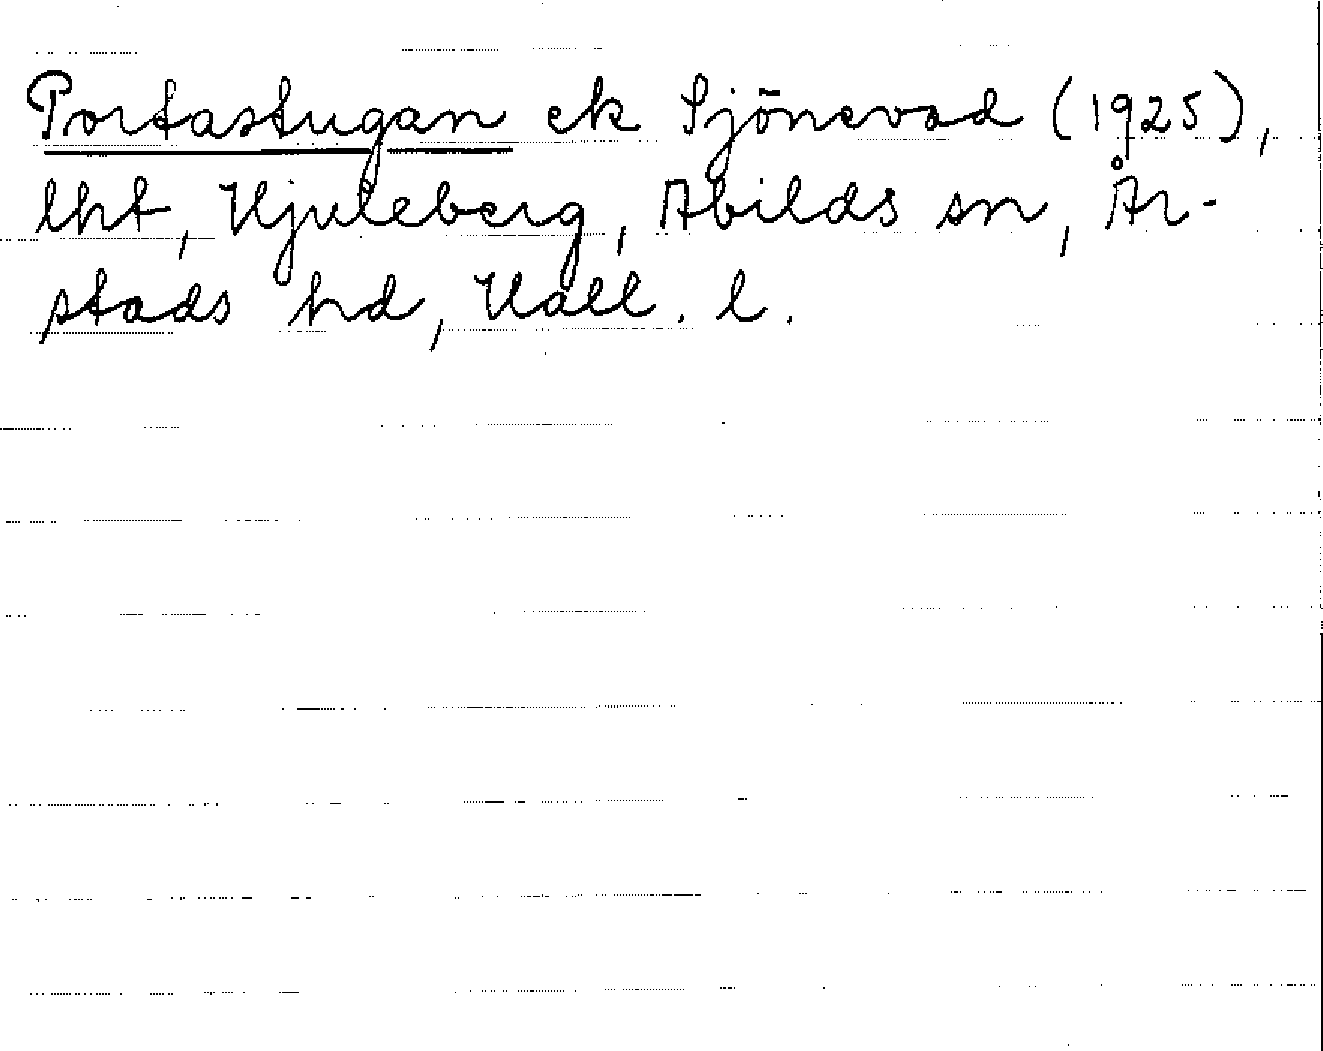 Portastugan ek Sjönevad (1925),
lht, Hjuleberg, Abilds sn, År-
stads hd, Hall. l.